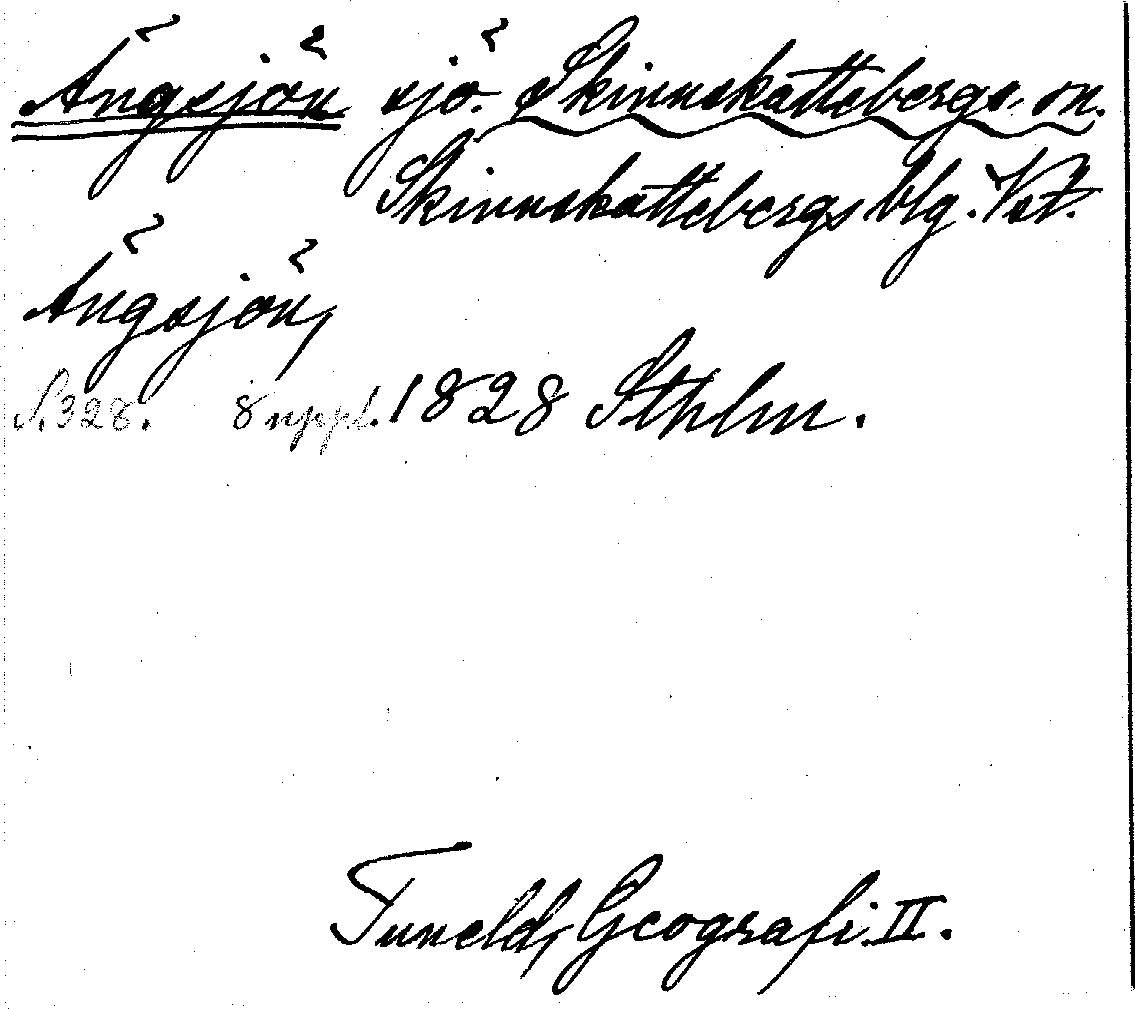 Ängsjön sjö. Skinnskattebergs. sn.
Skinnskattebergs blg. Vst.
Ängsjön,
S. 328. 8 uppl. 1828 Sthlm.
Tuneld, Geografi II.